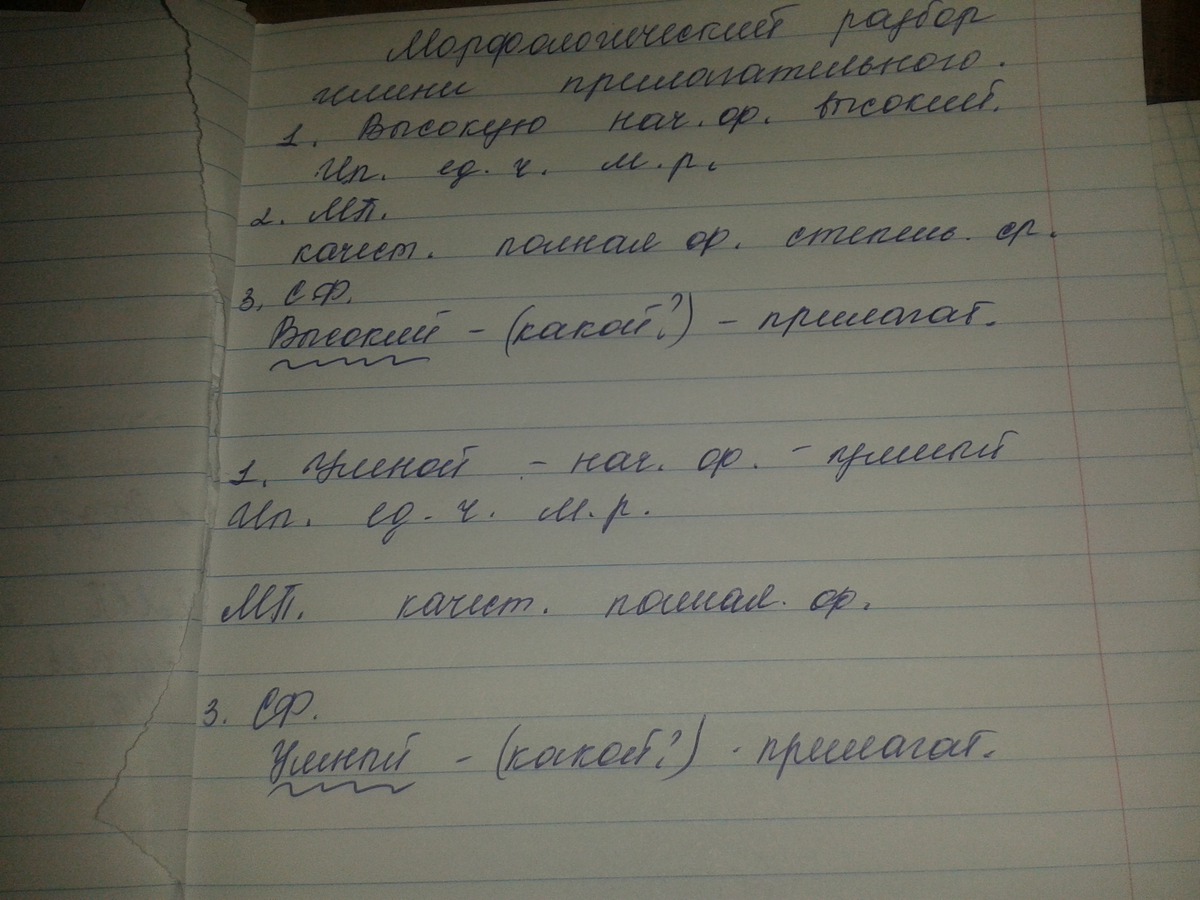 Морфологический разбор
имени прилагательного.
1. Высокую нач. ф. высокий.
Ип. ед. ч. м. р.
2. МП.
качест. полная ф. степень. ср.
3. СФ.
Высокий - (какой?) - прилагат.
1. Умной - нач. ф. - умный
Ип. ед. ч. м. р.
МП. качест. полная. ф.
3. СФ.
Умный - (какой?) - прилагат.